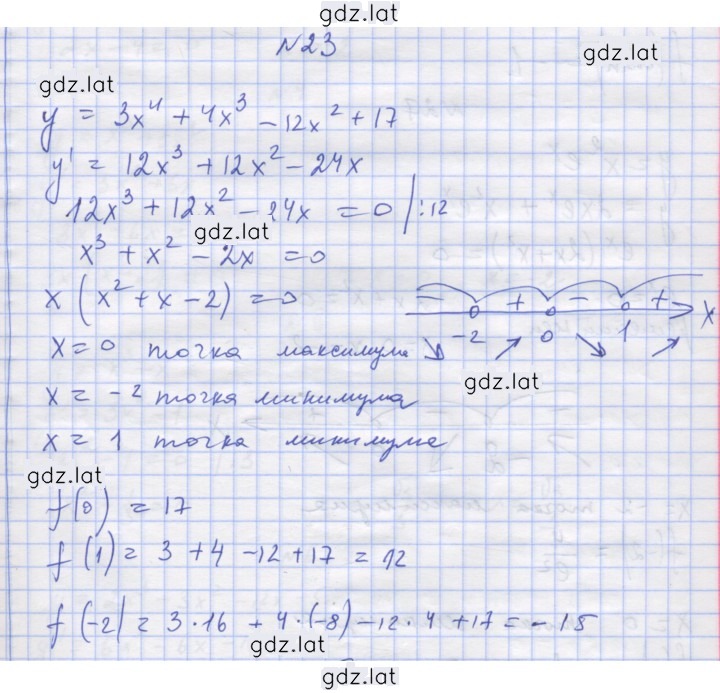 gdz.lat
№23
gdz.lat
gdz.lat
y = 3x⁴ + 4x³ - 12x² + 17
y' = 12x³ + 12x² - 24x
12x³ + 12x² - 24x = 0 | :12
gdz.lat
x³ + x² - 2x = 0
x (x² + x - 2) = 0
- + - + x
-2 0 1
x = 0 точка максимума
gdz.lat
x = -2 точка минимума
x = 1 точка минимума
gdz.lat
f(0) = 17
f(1) = 3 + 4 - 12 + 17 = 12
f(-2) = 3·16 + 4·(-8) - 12·4 + 17 = -15
gdz.lat
gdz.lat